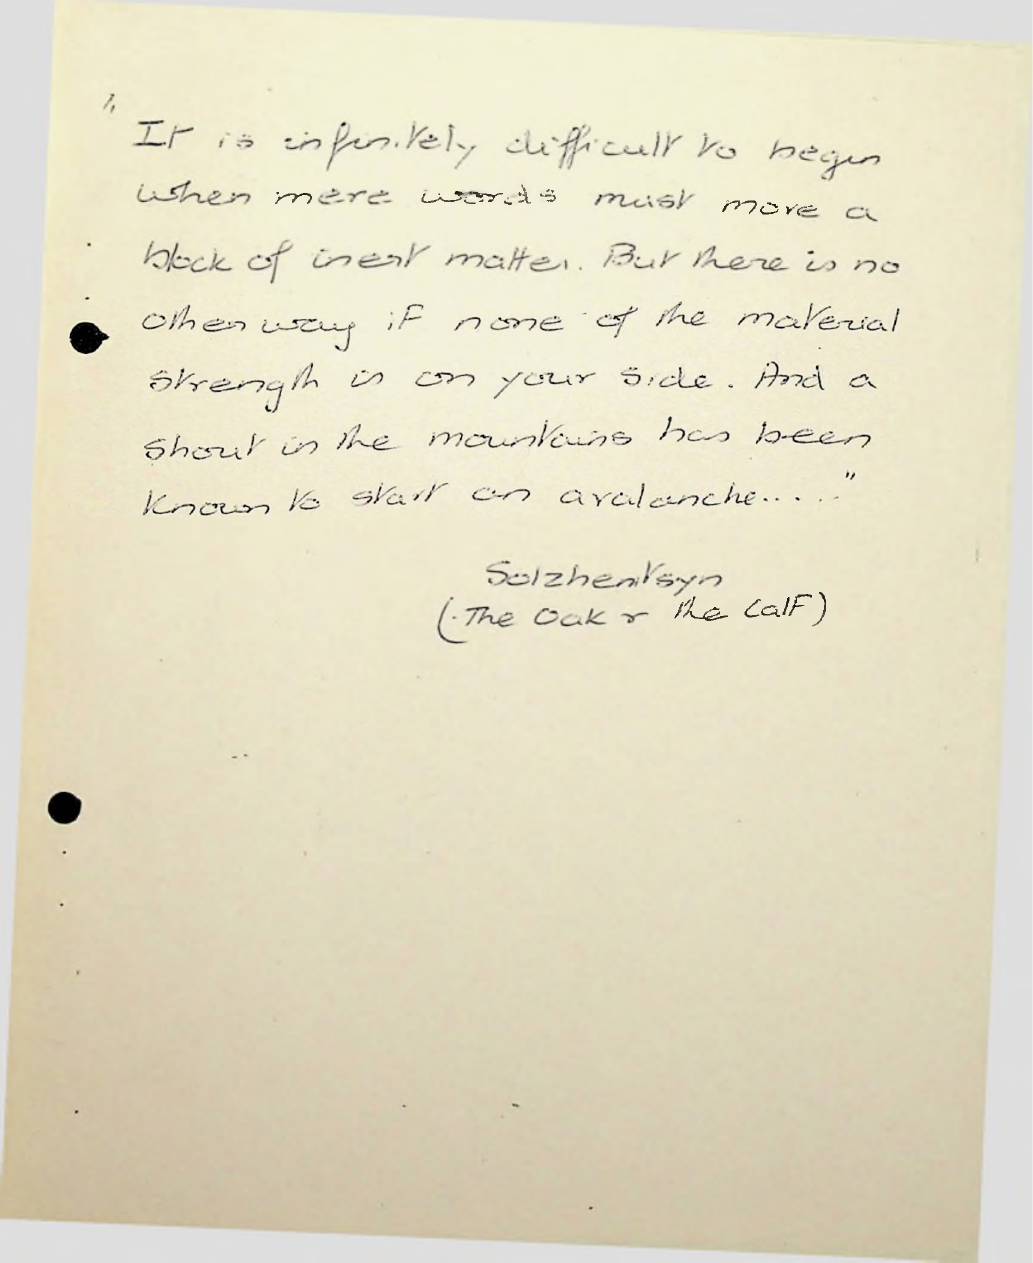 "It is infinitely difficult to begin
when mere words must move a
block of inert matter. But there is no
other way if none of the material
strength is on your side. And a
shout in the mountains has been
known to start an avalanche....."
Solzhenitsyn
(The Oak & the Calf)